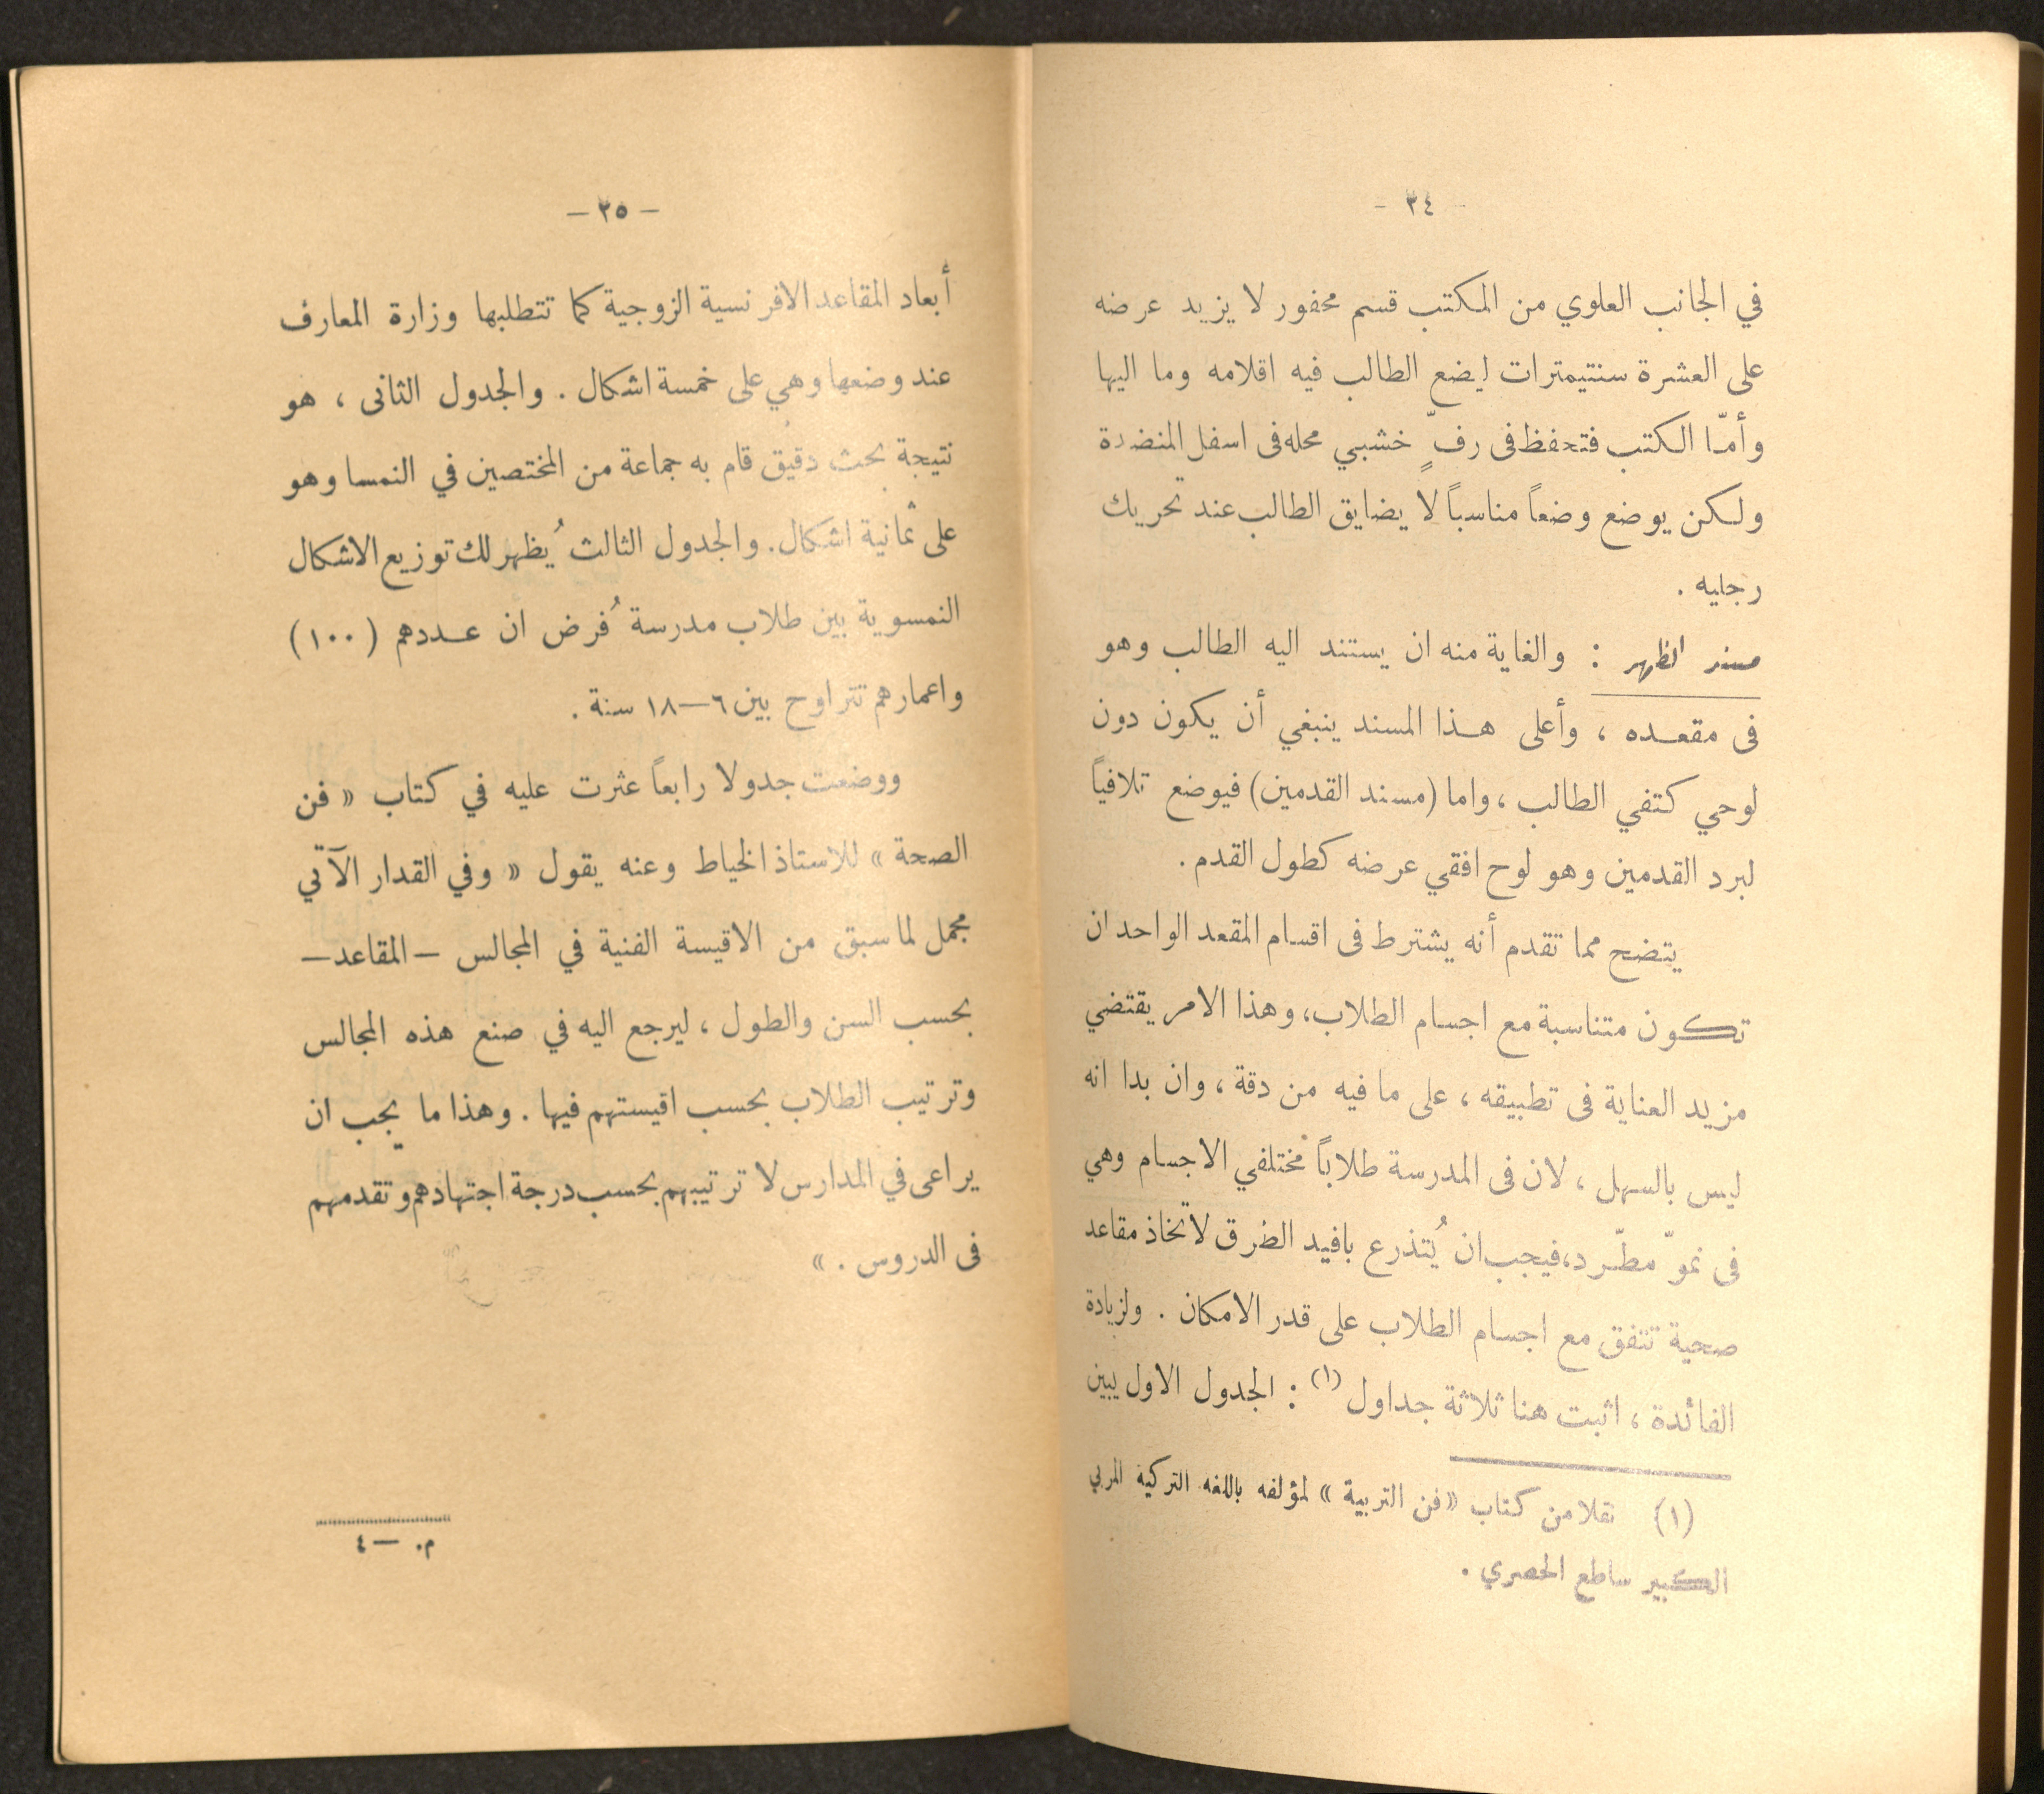 - ٣٤ -
في الجانب العلوي من المكتب قسم محفور لا يزيد عرضه
على العشرة سنتيمترات ليضع الطالب فيه اقلامه وما اليها
وأمّا الكتب فتحفظ فى رفٍّ خشبي محله فى اسفل المنضدة
ولكن يوضع وضعاً مناسباً لا يضايق الطالب عند تحريك
رجليه .
مسند الظهر : والغاية منه ان يستند اليه الطالب وهو
فى مقعده ، وأعلى هذا المسند ينبغي أن يكون دون
لوحي كتفي الطالب ، واما (مسند القدمين) فيوضع تلافياً
لبرد القدمين وهو لوح افقي عرضه كطول القدم .
يتضح مما تقدم أنه يشترط فى اقسام المقعد الواحد ان
تكون متناسبة مع اجسام الطلاب، وهذا الامر يقتضي
مزيد العناية فى تطبيقه ، على ما فيه من دقة ، وان بدا انه
ليس بالسهل ، لان فى المدرسة طلاباً مختلفي الاجسام وهي
فى نموّ مطّرد، فيجب ان يُتذرع بافيد الطرق لاتخاذ مقاعد
صحية تتفق مع اجسام الطلاب على قدر الامكان . ولزيادة
الفائدة ، اثبت هنا ثلاثة جداول (١) : الجدول الاول يبين
(١) نقلا من كتاب «فن التربية» لمؤلفه باللغه التركية المربي
الكبير ساطع الحصري .
- ٢٥ -
أبعاد المقاعد الافرنسية الزوجية كما تتطلبها وزارة المعارف
عند وضعها وهي على خمسة اشكال . والجدول الثانى ، هو
نتيجة بحث دقيق قام به جماعة من المختصين في النمسا وهو
على ثمانية اشكال. والجدول الثالث يُظهر لك توزيع الاشكال
النمسوية بين طلاب مدرسة فُرض ان عددهم (١٠٠)
واعمارهم تتراوح بين ٦–١٨ سنة .
ووضعت جدولا رابعاً عثرت عليه في كتاب « فن
الصحة » للاستاذ الخياط وعنه يقول « وفي القدار الآتي
مجمل لما سبق من الاقيسة الفنية في المجالس – المقاعد –
بحسب السن والطول ، ليرجع اليه في صنع هذه المجالس
وترتيب الطلاب بحسب اقيستهم فيها . وهذا ما يجب ان
يراعى في المدارس لا ترتيبهم بحسب درجة اجتهادهم وتقدمهم
فى الدروس . »
م. – ٤